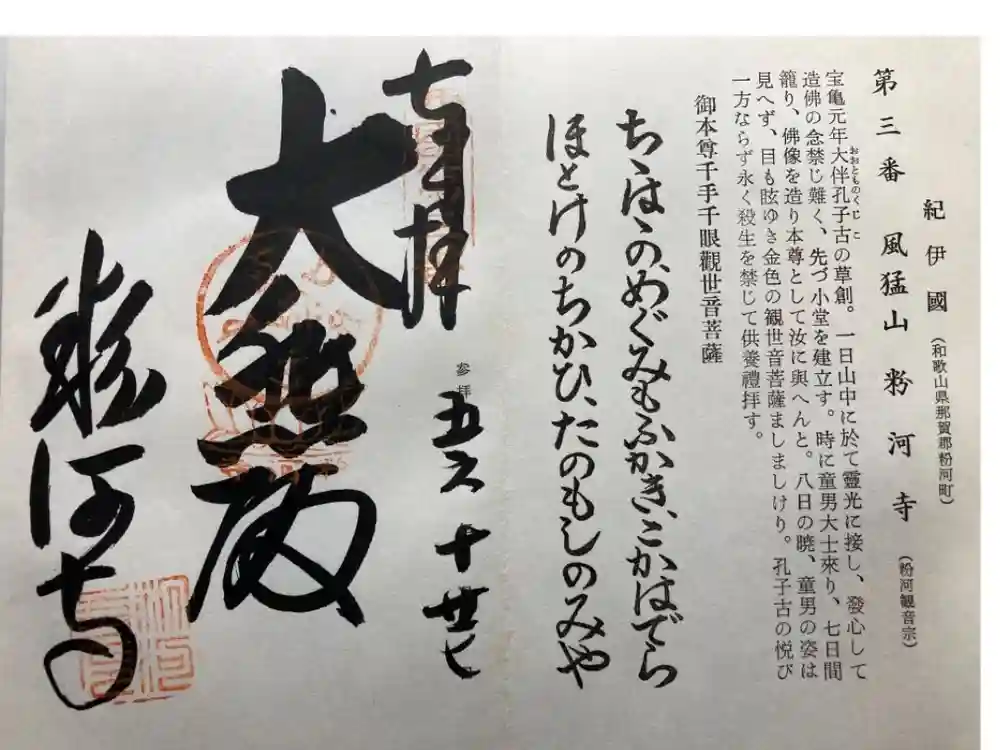 紀伊國（和歌山県那賀郡粉河町）
第三番　風猛山　粉河寺（粉河観音宗）
宝亀元年大伴孔子古の草創。一日山中に於て靈光に接し、發心して
おおとものくじこ
造佛の念禁じ難く、先づ小堂を建立す。時に童男大士來り、七日間
籠り、佛像を造り本尊として汝に與へんと。八日の暁、童男の姿は
見へず、目も眩ゆき金色の観世音菩薩ましましけり。孔子古の悦び
一方ならず永く殺生を禁じて供養禮拝す。
御本尊千手千眼觀世音菩薩
ちゝはゝの、めぐみもふかき、こかはでら
ほとけのちかひ、たのもしのみや
奉拝
参拝
五六　十　廿七
大悲殿
粉河寺